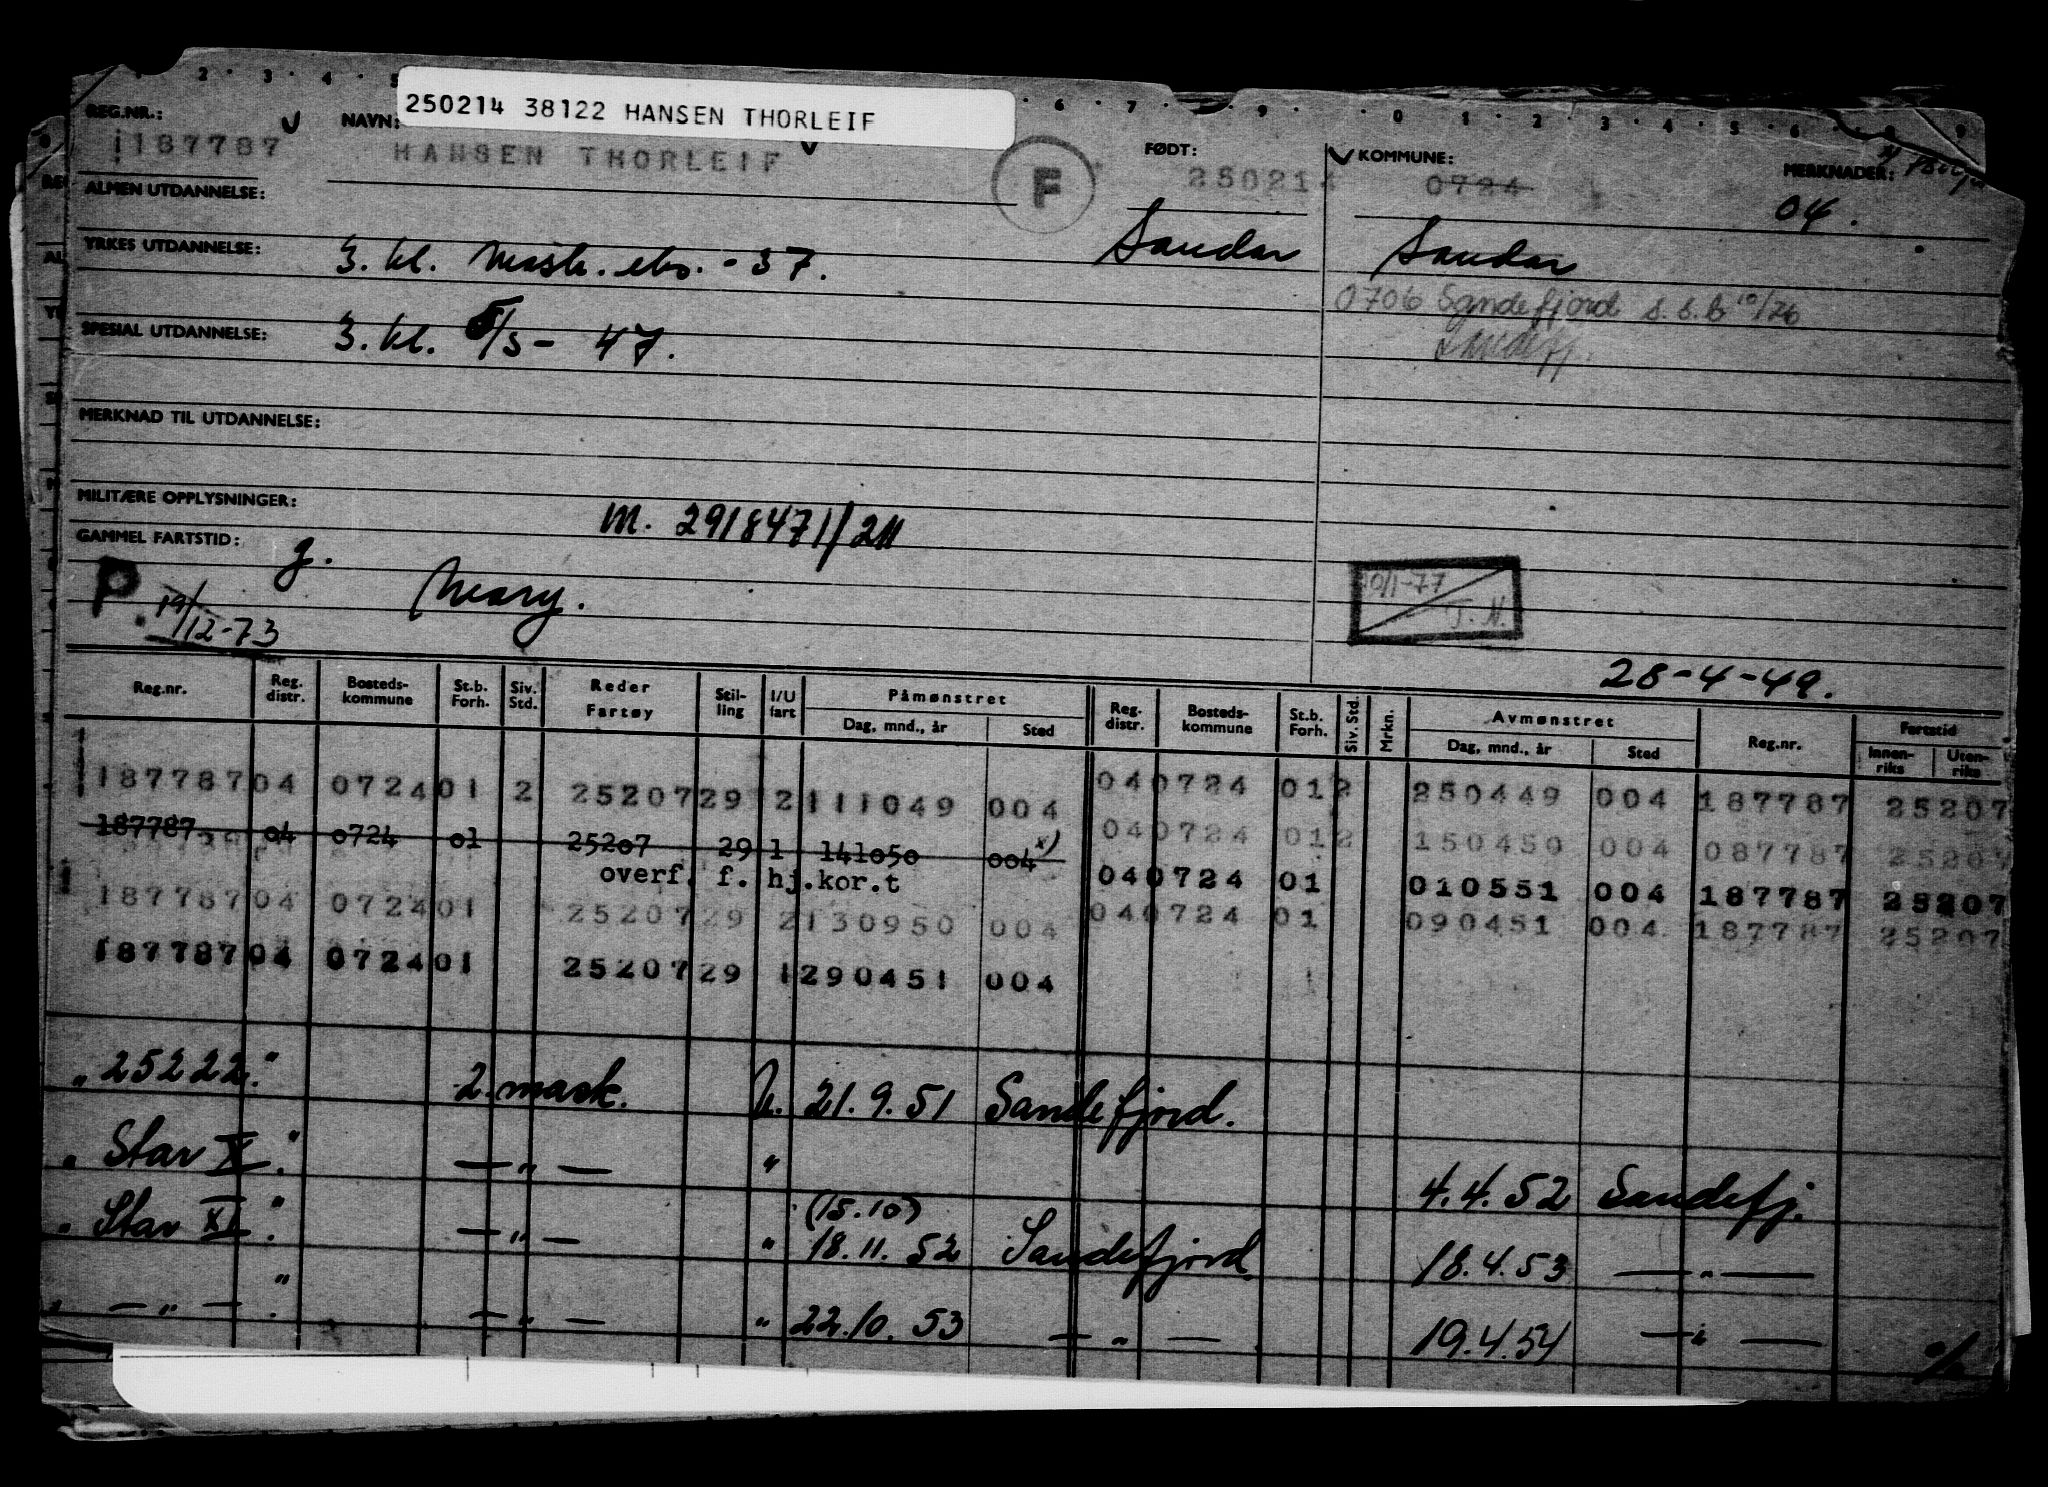 2 · 3 · 4 · 5 · 6 · 7 · 9 · 0 1 2 3 4 5 6 8 9
250214 38122 HANSEN THORLEIF
REG.NR.: NAVN: FØDT: KOMMUNE: MERKNADER:
1187787 HANSEN THORLEIF F 250214 0724
04.
ALMEN UTDANNELSE:
YRKES UTDANNELSE: 3. kl. mask. eks. - 37. Sandar Sandar
0706 Sandefjord s.s.b 10/26
Sandefj.
SPESIAL UTDANNELSE: 3. kl. S/S - 47.
MERKNAD TIL UTDANNELSE:
MILITÆRE OPPLYSNINGER: M. 2918471/211
GAMMEL FARTSTID: g. Mary.
P. 19/12-73
10/1-77 T.N.
28-4-49.
Reg.nr. Reg. distr. Bosteds-kommune St.b. Forh. Siv. Std. Reder Fartøy Stil-ling I/U fart Påmønstret Dag, mnd., år Sted Reg. distr. Bosteds-kommune St.b. Forh. Siv. Std. Mrkn. Avmønstret Dag, mnd., år Sted Reg.nr. Fartstid Innen-riks Uten-riks
187787 04 0724 01 2 25207 29 2 111049 004 04 0724 01 2 250449 004 187787 25207
187787 04 0724 01 25207 29 1 141050 004 x) 04 0724 01 2 150450 004 087787 25207
overf. f. hj.kor.t 04 0724 01 010551 004 187787 25207
187787 04 0724 01 25207 29 2 130950 004 04 0724 01 090451 004 187787 25207
187787 04 0724 01 25207 29 1 290451 004
„25222." 2. mask. U. 21.9.51 Sandefjord.
„Star X." — „ — " 4.4.52 Sandefj.
„Star XI." — „ — " (15.10) 18.11.52 Sandefjord 18.4.53 — „ —
„ — „ — ." — „ — " 22.10.53 — „ — 19.4.54 — „ —